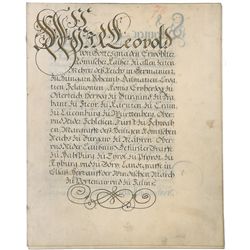 Wir Leopold
Von Gottes gnaden Erwöhlter
Römischer Kaiser, zu allen zeiten
Mehrer des Reichs in Germanien,
zu Hungarn, Böheimb, Dalmatien, Croa-
tien, Sclavonien, König, Erzherzog zu
Österreich, Herzog zu Burgund, zu Bra-
bant, zu Steyr, zu Kärnten, zu Crain,
zu Luxemburg, zu Württemberg, Ober-
und Nider Schlesien, Fürst zu Schwa-
ben, Marggraff des Heiligen Römischen
Reichs, zu Burgaw, zu Mähren, Ober-
und Nider Laußnitz, Gefürster Graff
zu Habspurg, zu Tyrol, zu Pfyrdt, zu
Kyburg und zu Görz, Landgraff in
Elsaß, Herr auf der Windischen March
zu Portenaw und zu Salins